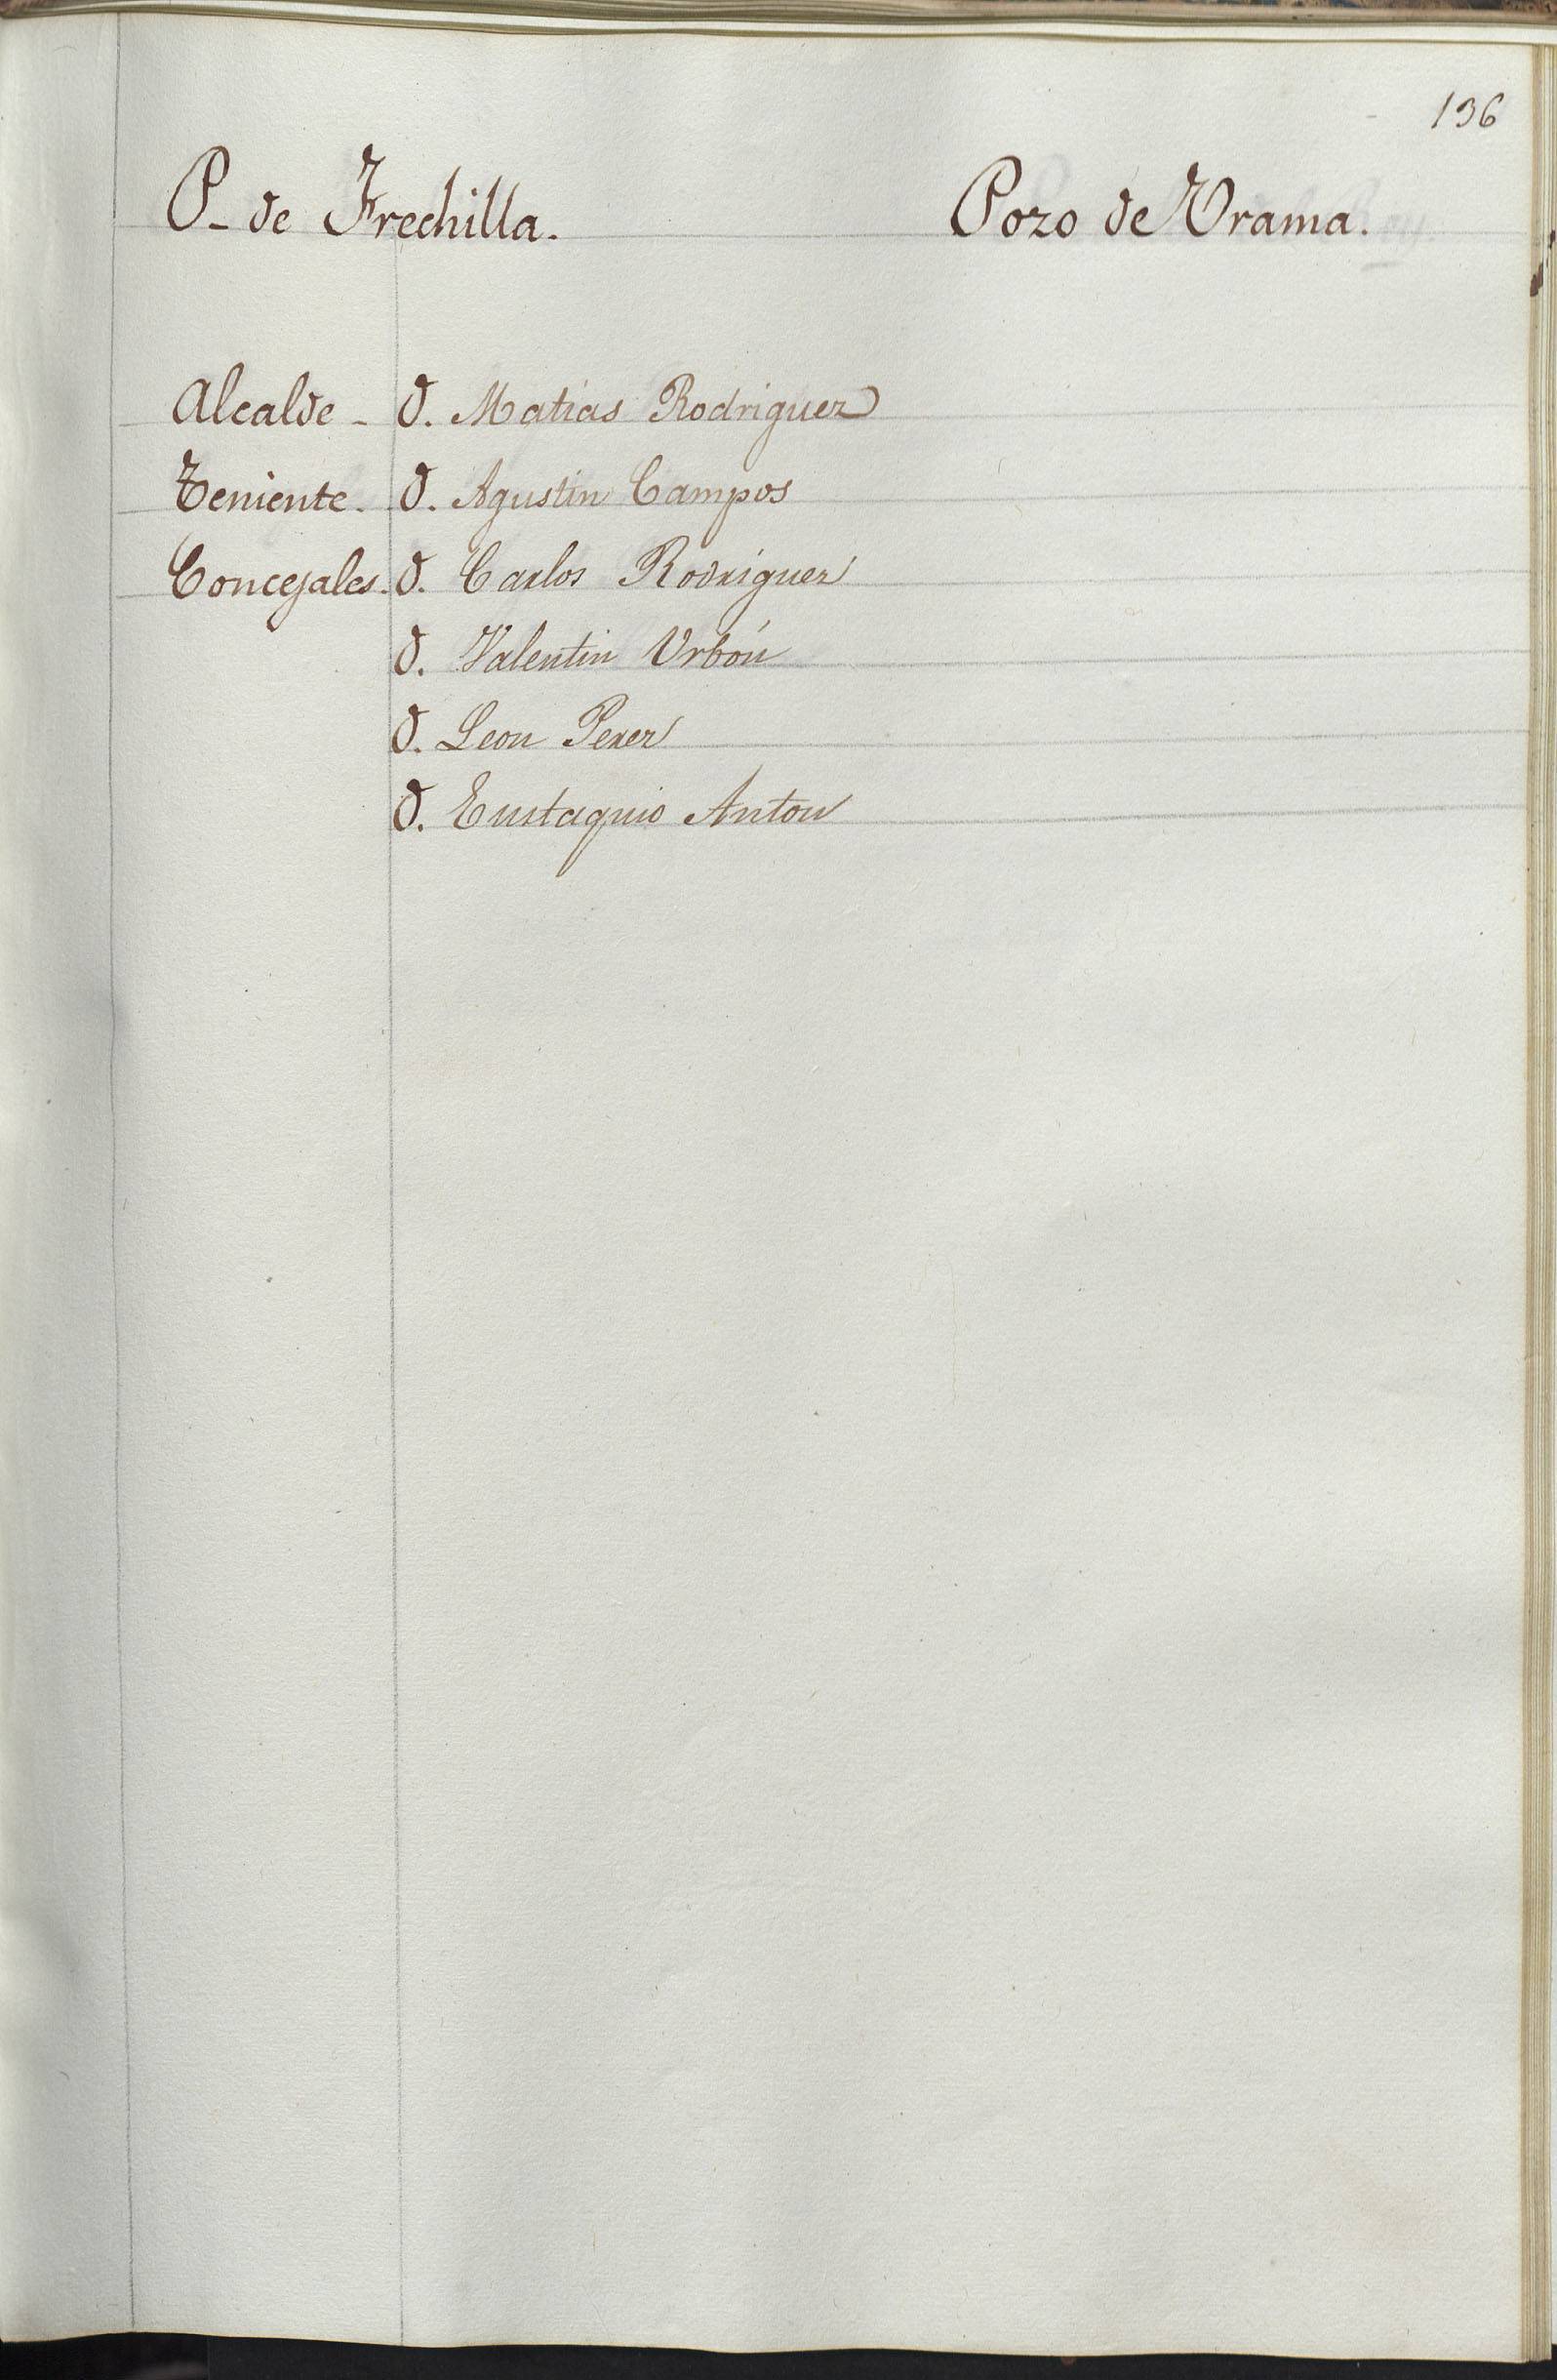 136
P- de Frechilla. Pozo de Urama.
Alcalde - D. Matias Rodriguez
Teniente. D. Agustin Campos
Concejales. D. Carlos Rodriguez
D. Valentin Urbón
D. Leon Perez
D. Eustaquio Anton